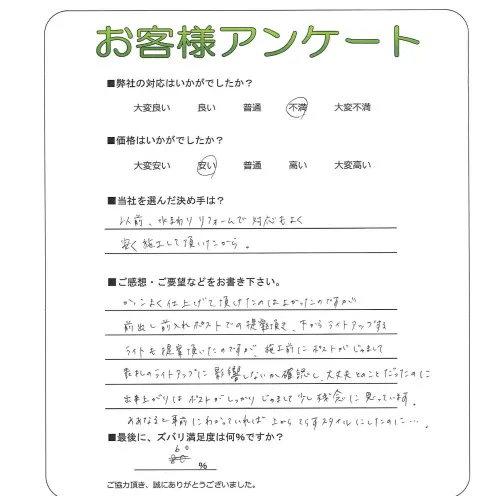 お客様アンケート
■弊社の対応はいかがでしたか？
大変良い 良い 普通 不満 大変不満
■価格はいかがでしたか？
大変安い 安い 普通 高い 大変高い
■当社を選んだ決め手は？
以前、水まわりリフォームで対応もよく
安く施工して頂いたから。
■ご感想・ご要望などをお書き下さい。
かっこよく仕上げて頂けたのはよかったのですが
前出し前入れポストでの提案頂き、下からライトアップする
ライトも提案頂いたのですが、施工前にポストがじゃまして
表札のライトアップに影響しないか確認し、大丈夫とのことだったのに
出来上がりはポストがしっかりじゃまして少し残念に思っています。
ああなると事前にわかっていれば上からてらすスタイルにしたのに…。
■最後に、ズバリ満足度は何%ですか？
60
80
%
ご協力頂き、誠にありがとうございました。